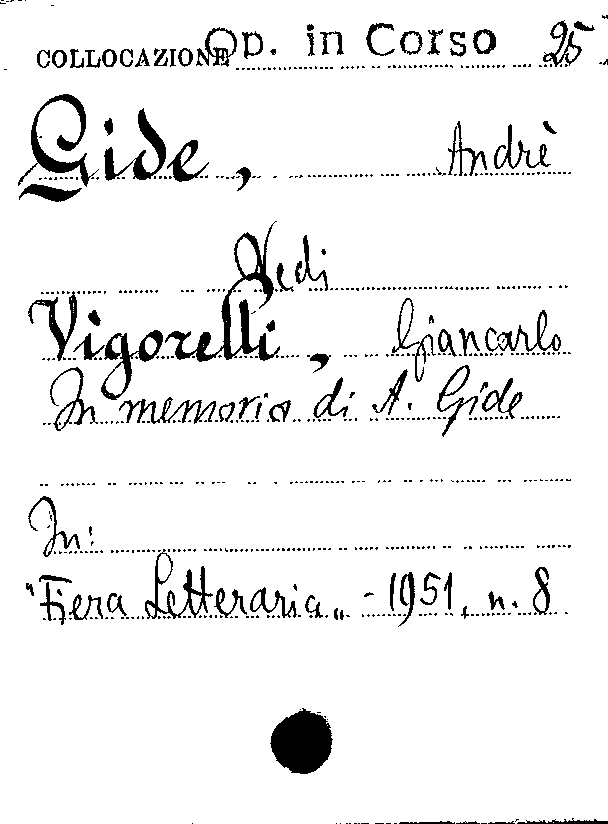 COLLOCAZIONE Op. in Corso 25
Gide, Andrè
Vedi
Vigorelli, Giancarlo
In memoria di A. Gide
In:
"Fiera Letteraria„ - 1951, n. 8